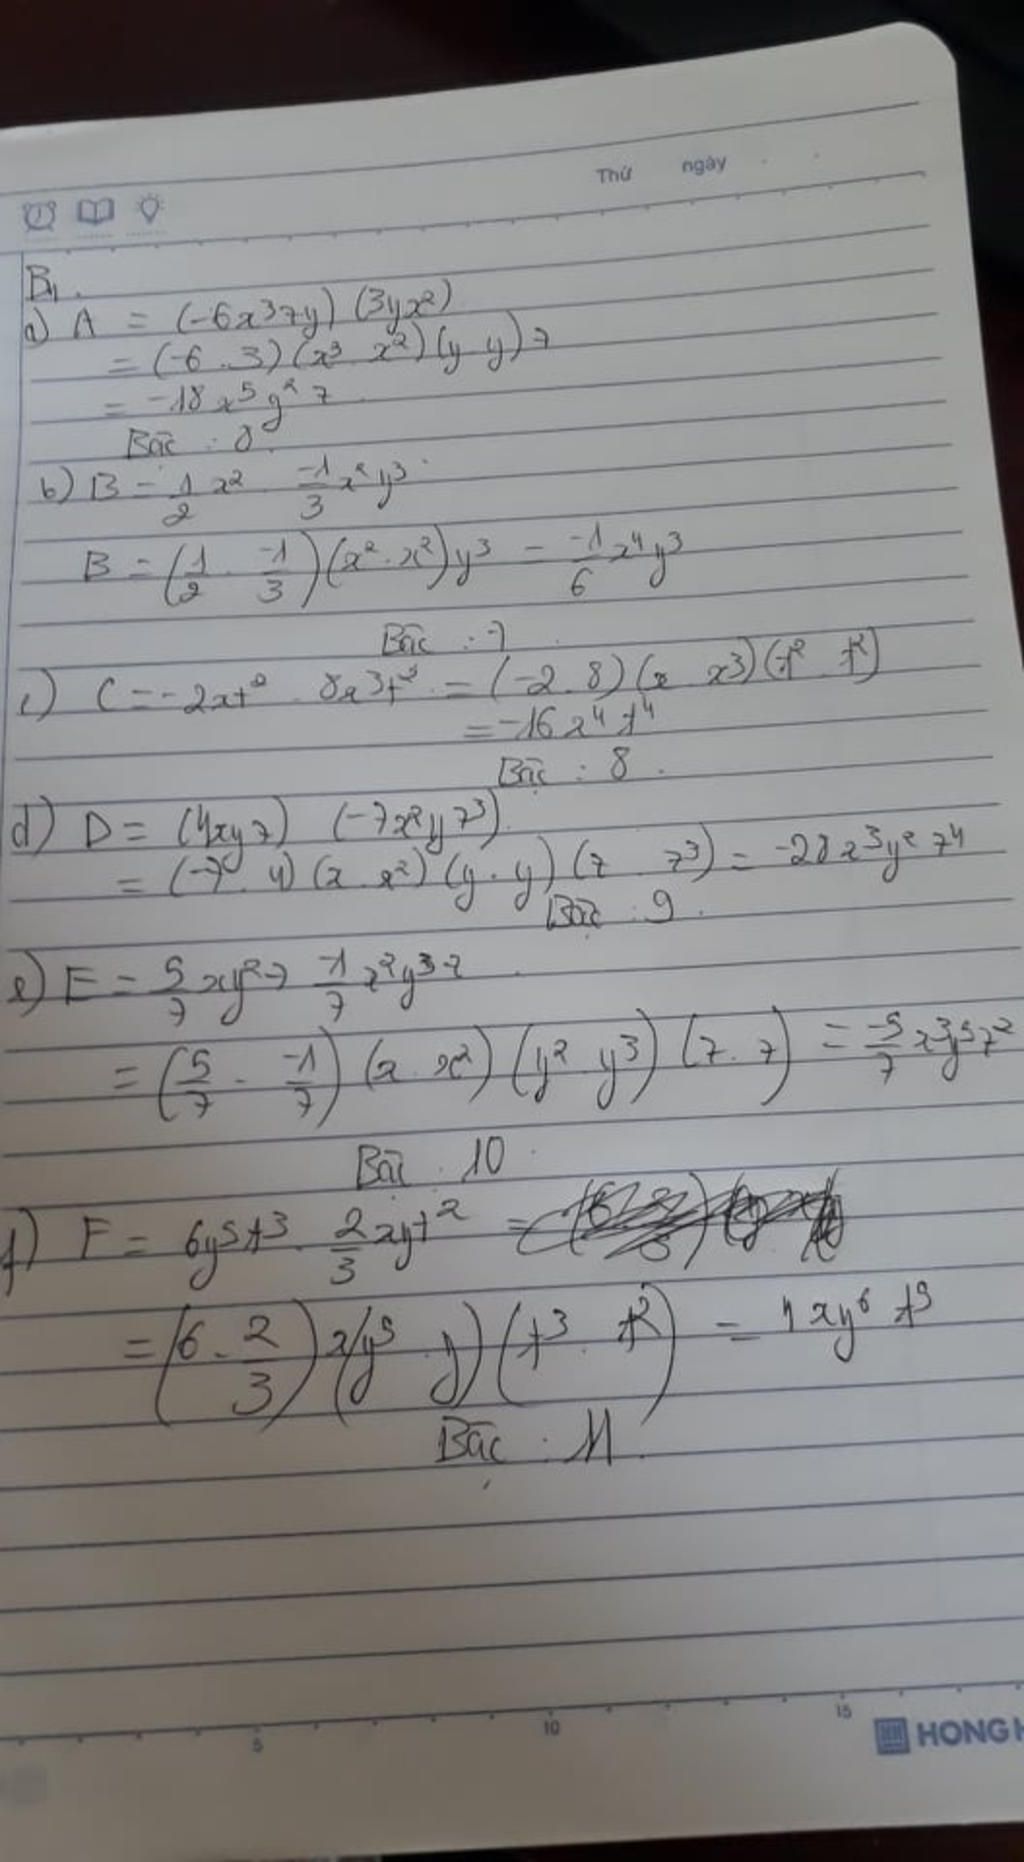 Thứ ngày
B1.
a) A = (-6x³zy) (3yx²)
= (-6 . 3) (x³ x²) (y y) z
= -18x⁵y² z
Bậc : 8.
b) B = 1/2 x² . -1/3 x²y³
B = (1/2 . -1/3) (x² . x²) y³ = -1/6 x⁴y³
Bậc : 7
c) C = -2xt² . 8x³t² = (-2 . 8) (x x³) (t² t²)
= -16x⁴t⁴
Bậc : 8.
d) D = (4xyz) (-7x²yz³)
= (-7 . 4) (x . x²) (y . y) (z . z³) = -28x³y²z⁴
Bậc : 9.
e) E = 5/7 xy²z -1/7 x²y³z
= (5/7 . -1/7) (x . x²) (y² . y³) (z . z) = -5/7 x³y⁵z²
Bậc : 10
f) F = 6y⁵t³ . 2/3 xyt² =
= (6 . 2/3) x(y⁵ . y) (t³ . t²) = 4xy⁶t⁵
Bậc : 11.
5 10 15
HONG H